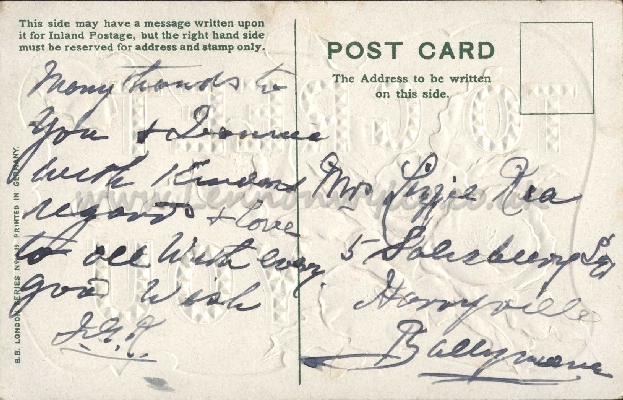 This side may have a message written upon
it for Inland Postage, but the right hand side
must be reserved for address and stamp only.
POST CARD
The Address to be written
on this side.
Many thanks to
You &
with Kindest
regards & love
to all With every
good Wish
Mrs Lizzie Rea
5 Salisbury Sq
Harryville
Ballymena
B.B. LONDON SERIES PRINTED IN GERMANY.
TO GREET
YOU